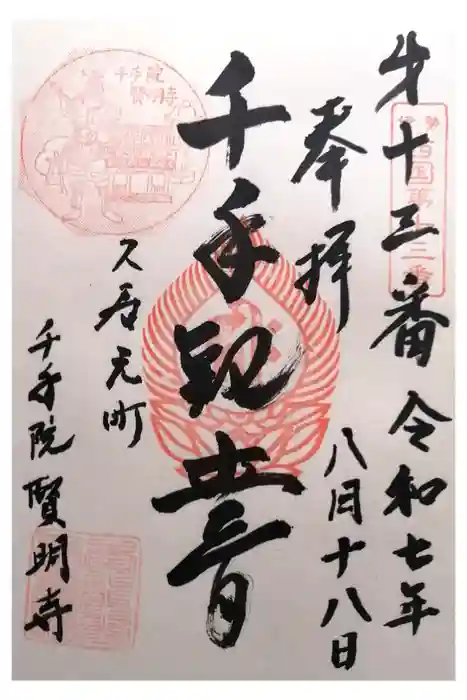 第十三番 令和七年
奉拝
八月十八日
千手観世音
久居元町
千手院賢明寺
千手院
賢明寺
伊勢
西国第十三番